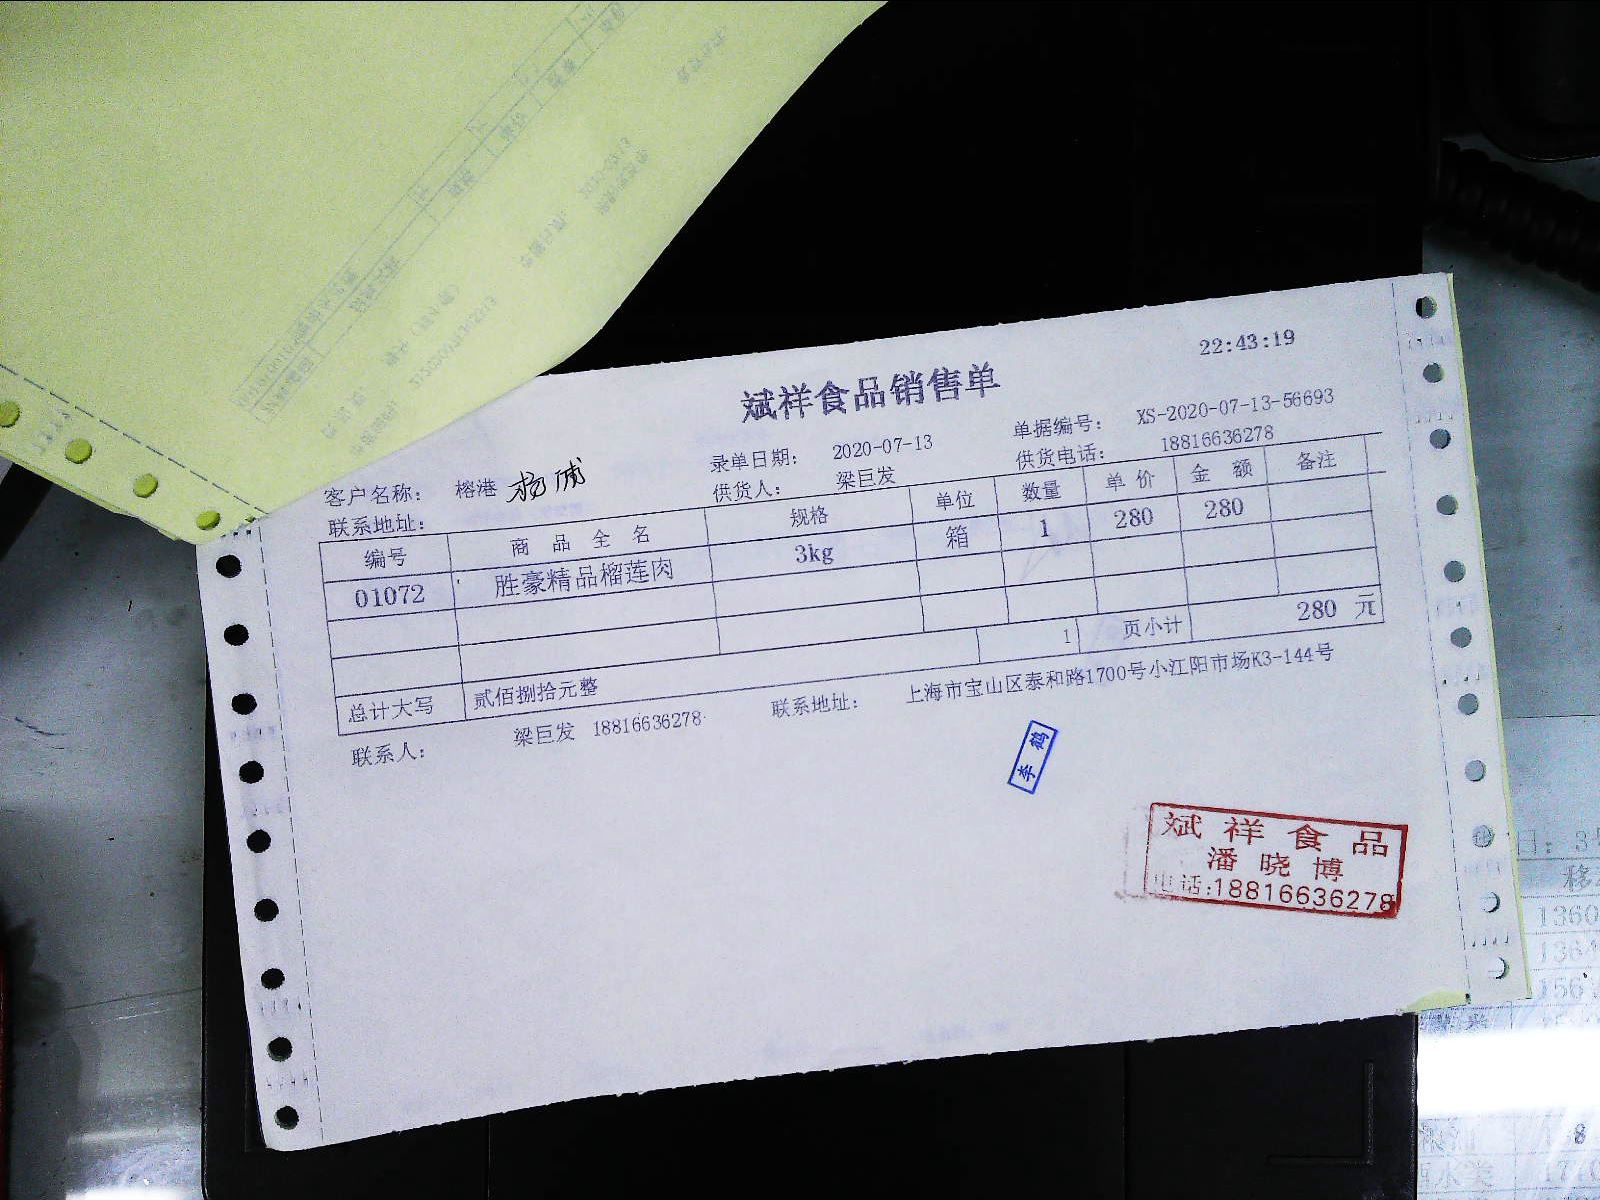 22:43:19
斌祥食品销售单
录单日期： 2020-07-13 单据编号： XS-2020-07-13-56693
客户名称： 榕港 杨浦 供货人： 梁巨发 供货电话： 18816636278
联系地址：
编号 商 品 全 名 规格 单位 数量 单 价 金 额 备注
01072 胜豪精品榴莲肉 3kg 箱 1 280 280
1 页小计 280 元
总计大写 贰佰捌拾元整
联系人： 梁巨发 18816636278 联系地址： 上海市宝山区泰和路1700号小江阳市场K3-144号
李 鹤
斌 祥 食 品
潘 晓 博
电话:18816636278